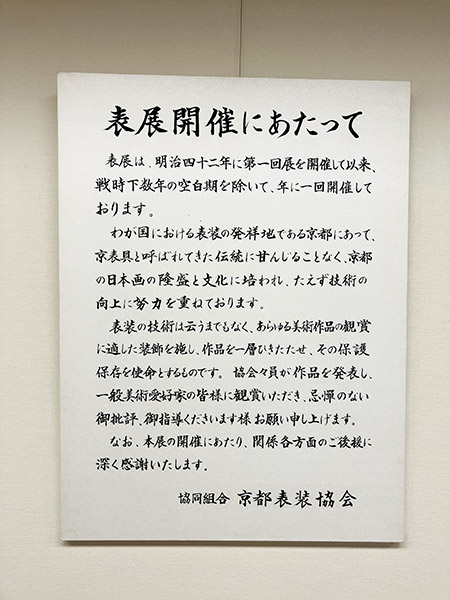 表展開催にあたって
表展は、明治四十二年に第一回展を開催して以来、
戦時下数年の空白期を除いて、年に一回開催して
おります。
わが国における表装の発祥地である京都にあって、
京表具と呼ばれてきた伝統に甘んじることなく、京都
の日本画の隆盛と文化に培われ、たえず技術の
向上に努力を重ねております。
表装の技術は云うまでもなく、あらゆる美術作品の観賞
に適した装飾を施し、作品を一層ひきたたせ、その保護
保存を使命とするものです。協会々員が作品を発表し、
一般美術愛好家の皆様に観賞いただき、忌憚のない
御批評、御指導くださいます様お願い申し上げます。
なお、本展の開催にあたり、関係各方面のご後援に
深く感謝いたします。
協同組合 京都表装協会